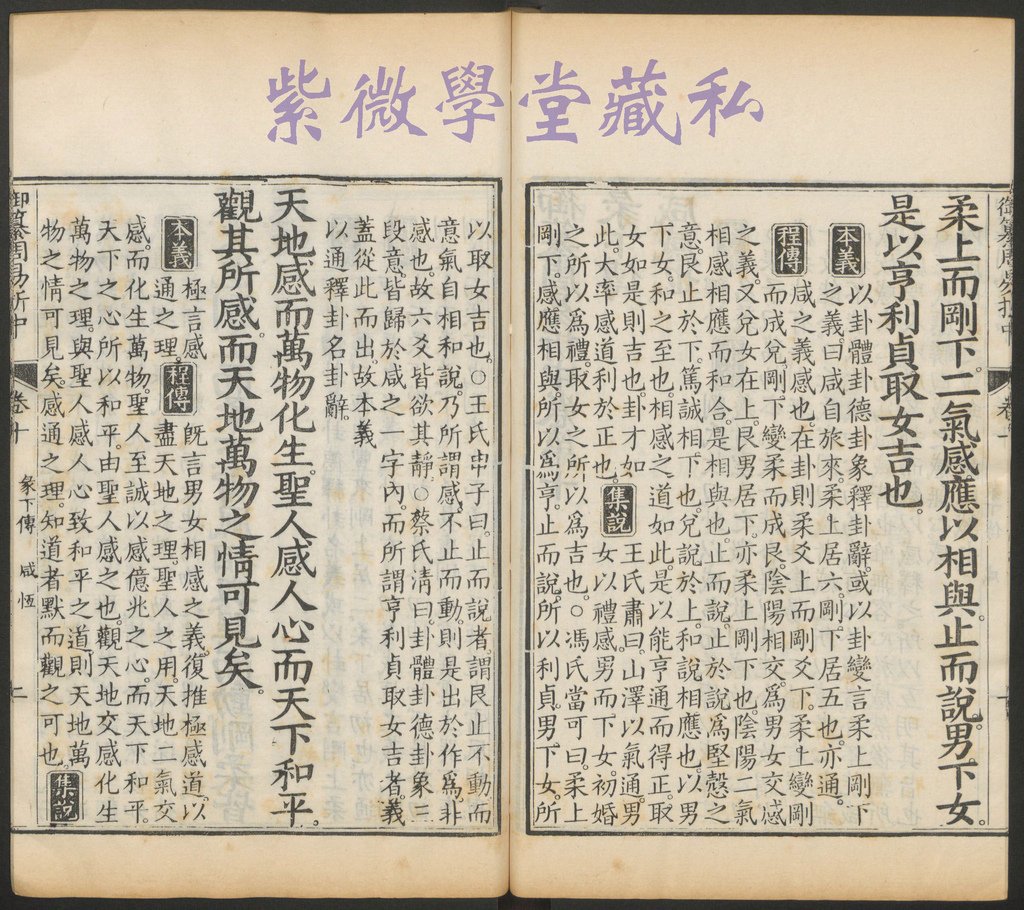 紫微學堂藏私
柔上而剛下。二氣感應以相與。止而說。男下女。
是以亨利貞取女吉也。
本義 以卦體卦德卦象釋卦辭。或以卦變言柔上剛下
之義。曰咸自旅來。柔上居六。剛下居五也。亦通。
程傳 咸之義感也。在卦則柔爻上而剛爻下。柔上變剛
而成兌。剛下變柔而成艮。陰陽相交。爲男女交感
之義。又兌女在上。艮男居下。亦柔上剛下也。陰陽二氣
相感相應而和合。是相與也。止而說。止於說。爲堅慤之
意。艮止於下。篤誠相下也。兌說於上。和說相應也。以男
下女。和之至也。相感之道如此。是以能亨通而得正。取
女如是則吉也。卦才如
此。大率感道利於正也。 集說 王氏肅曰。山澤以氣通。男
女以禮感。男而下女。初婚
之所以爲禮。取女之所以爲吉也。○馮氏當可曰。柔上
剛下。感應相與。所以爲亨。止而說。所以利貞。男下女。所
以取女吉也。○王氏申子曰。止而說者。謂艮止不動。而
意氣自相和說。乃所謂感。不止而動。則是出於作爲。非
感也。故六爻皆欲其靜。○蔡氏清曰。卦體卦德卦象三
段意。皆歸於咸之一字內。而所謂亨利貞取女吉者。義
蓋從此而出。故本義
以通釋卦名卦辭。
天地感而萬物化生。聖人感人心而天下和平。
觀其所感。而天地萬物之情可見矣。
本義 極言感
通之理。 程傳 旣言男女相感之義。復推極感道。以
盡天地之理。聖人之用。天地二氣交
感。而化生萬物。聖人至誠以感億兆之心。而天下和平。
天下之心所以和平。由聖人感之也。觀天地交感化生
萬物之理。與聖人感人心致和平之道。則天地萬
物之情可見矣。感通之理。知道者默而觀之可也。 集說
御纂周易折中 卷十 彖下傳 咸 恆 二